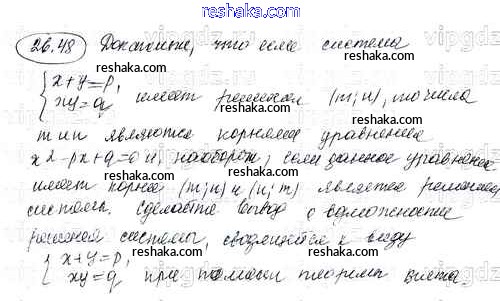 reshaka.ru
26.48 Докажите, что если система
{ x+y=p,
xy=q имеет решения (m;n), то числа
m и n являются корнями уравнения
x2-px+q=0 и, наоборот, если данное уравнение
имеет корни (m;n) и (n;m) является решением
системы. Сделайте вывод о возможности
решения системы, сводящейся к виду
{ x+y=p,
xy=q при помощи теоремы Виета.
reshaka.ru